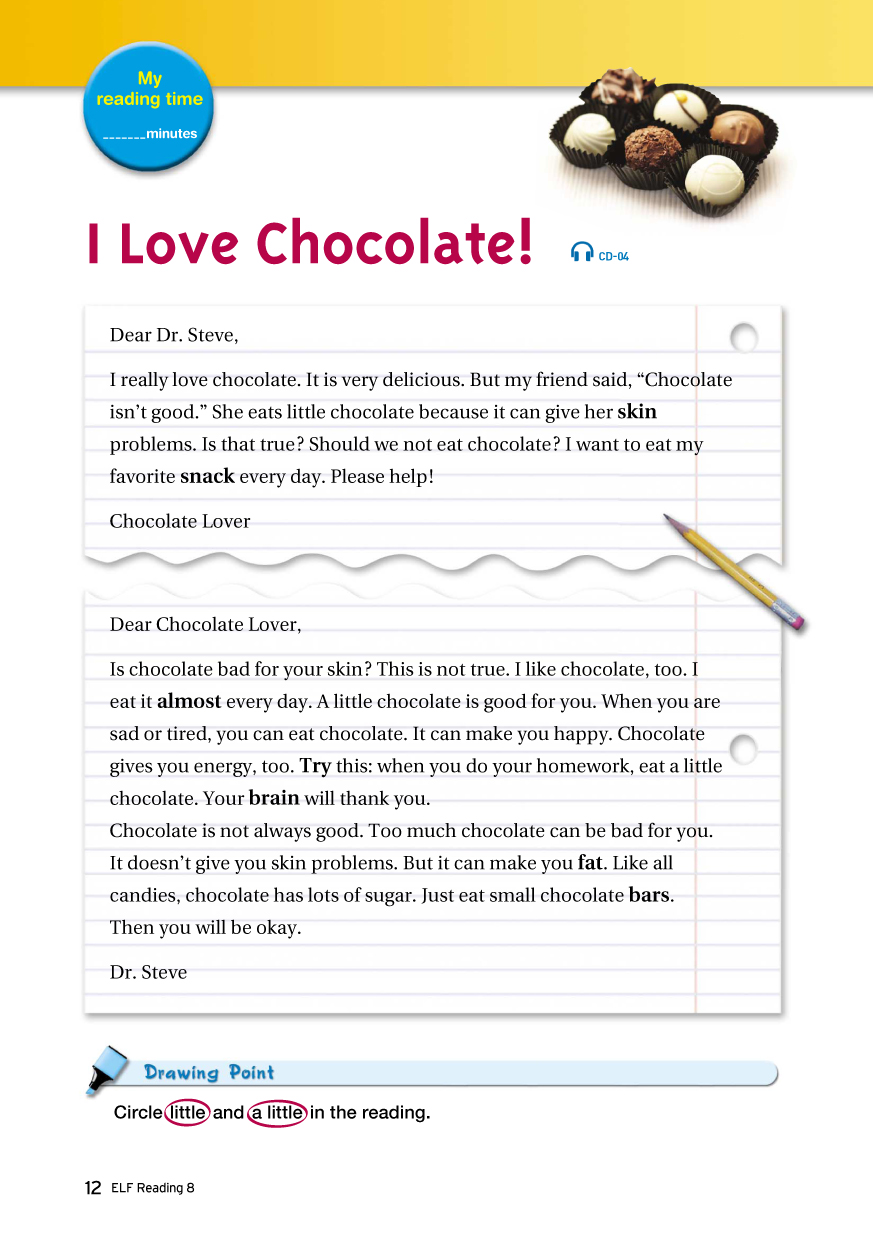 My
reading time
_______minutes
I Love Chocolate!
CD-04
Dear Dr. Steve,
I really love chocolate. It is very delicious. But my friend said, “Chocolate
isn’t good.” She eats little chocolate because it can give her skin
problems. Is that true? Should we not eat chocolate? I want to eat my
favorite snack every day. Please help!
Chocolate Lover
Dear Chocolate Lover,
Is chocolate bad for your skin? This is not true. I like chocolate, too. I
eat it almost every day. A little chocolate is good for you. When you are
sad or tired, you can eat chocolate. It can make you happy. Chocolate
gives you energy, too. Try this: when you do your homework, eat a little
chocolate. Your brain will thank you.
Chocolate is not always good. Too much chocolate can be bad for you.
It doesn’t give you skin problems. But it can make you fat. Like all
candies, chocolate has lots of sugar. Just eat small chocolate bars.
Then you will be okay.
Dr. Steve
Drawing Point
Circle little and a little in the reading.
12 ELF Reading 8